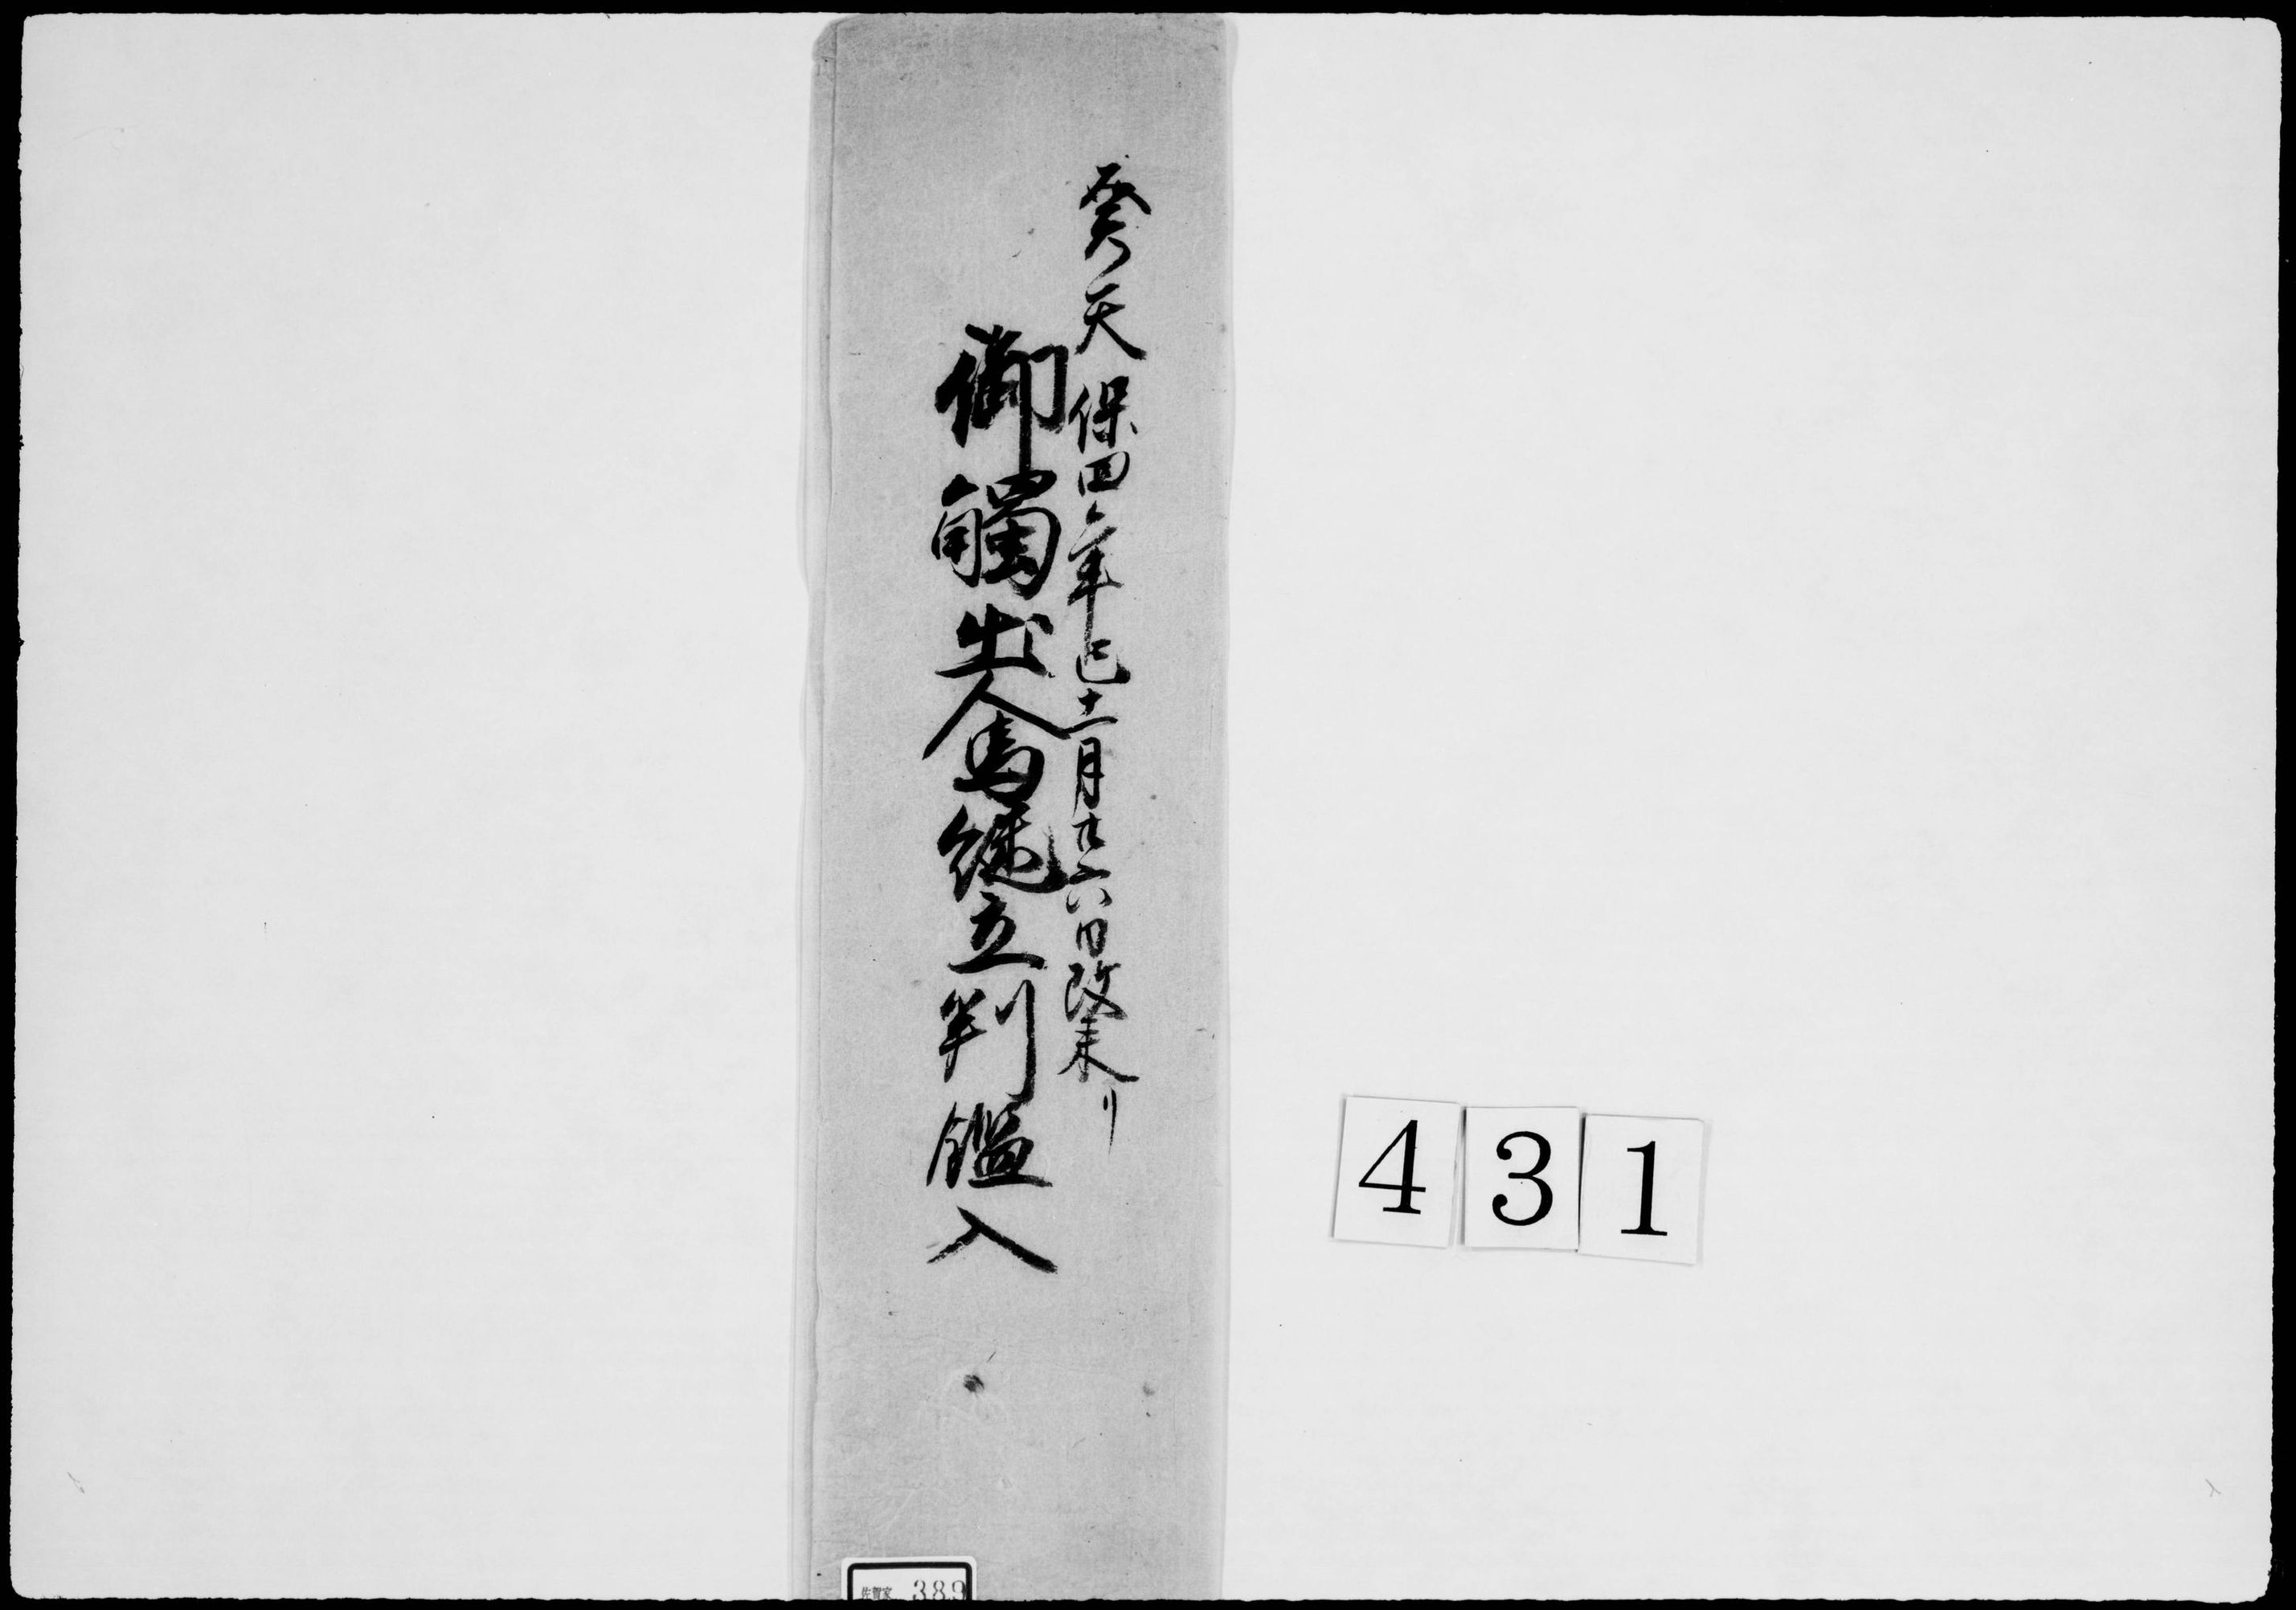 癸天保四年巳十一月廿六日改来リ
御觸出人馬継立判鑑入
4 3 1
佐賀家 389